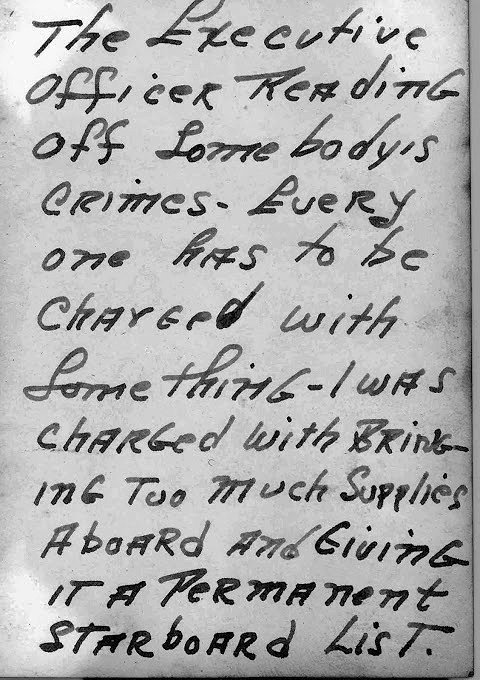 The Executive
Officer Reading
Off Somebody's
Crimes - Every
one has to be
Charged with
Something - I was
charged with Bring-
ing Too much Supplies
Aboard and Giving
it A Permanent
Starboard List.